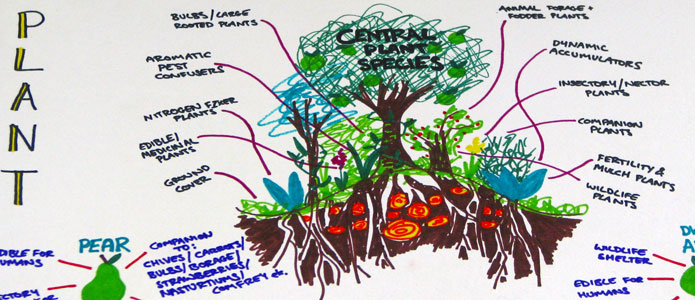 PLANT
CENTRAL
PLANT
SPECIES
BULBS/LARGE
ROOTED PLANTS
AROMATIC
PEST
CONFUSERS
NITROGEN FIXER
PLANTS
EDIBLE/
MEDICINAL
PLANTS
GROUND
COVER
ANIMAL FORAGE +
FODDER PLANTS
DYNAMIC
ACCUMULATORS
INSECTORY/NECTOR
PLANTS
COMPANION
PLANTS
FERTILITY &
MULCH PLANTS
WILDLIFE
PLANTS
PEAR
DIBLE FOR
UMANS
ECTORY
COMPANION
TO:
CHIVES/CARROTS/
BULBS/BORAGE/
STRAWBERRIES/
NASTURTIUMS/
COMFREY etc.
WILDLIFE
SHELTER
EDIBLE FOR
HUMANS